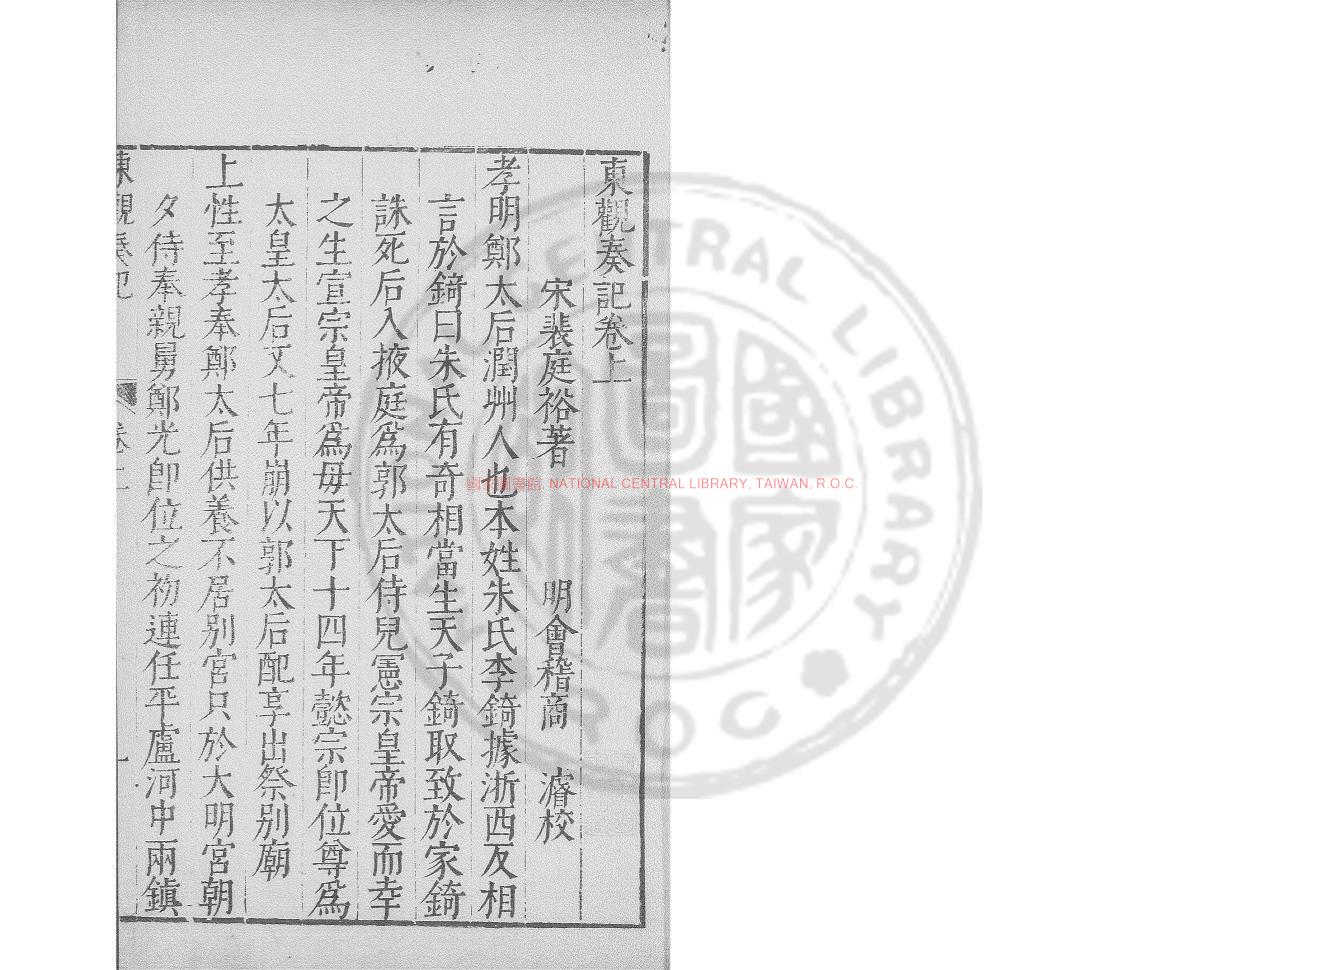 東觀奏記卷上
宋裴庭裕著 明會稽商 濬校
孝明鄭太后潤州人也本姓朱氏李錡據浙西反相
言於錡曰朱氏有奇相當生天子錡取致於家錡
誅死后入掖庭爲郭太后侍兒憲宗皇帝愛而幸
之生宣宗皇帝爲母天下十四年懿宗卽位尊爲
太皇太后又七年崩以郭太后配享出祭別廟
上性至孝奉鄭太后供養不居別宮只於大明宮朝
夕侍奉親舅鄭光卽位之初連任平盧河中兩鎮
東觀奏記 卷上 一
國家圖書館, NATIONAL CENTRAL LIBRARY, TAIWAN, R.O.C.
CENTRAL LIBRARY
ROC
國家圖書